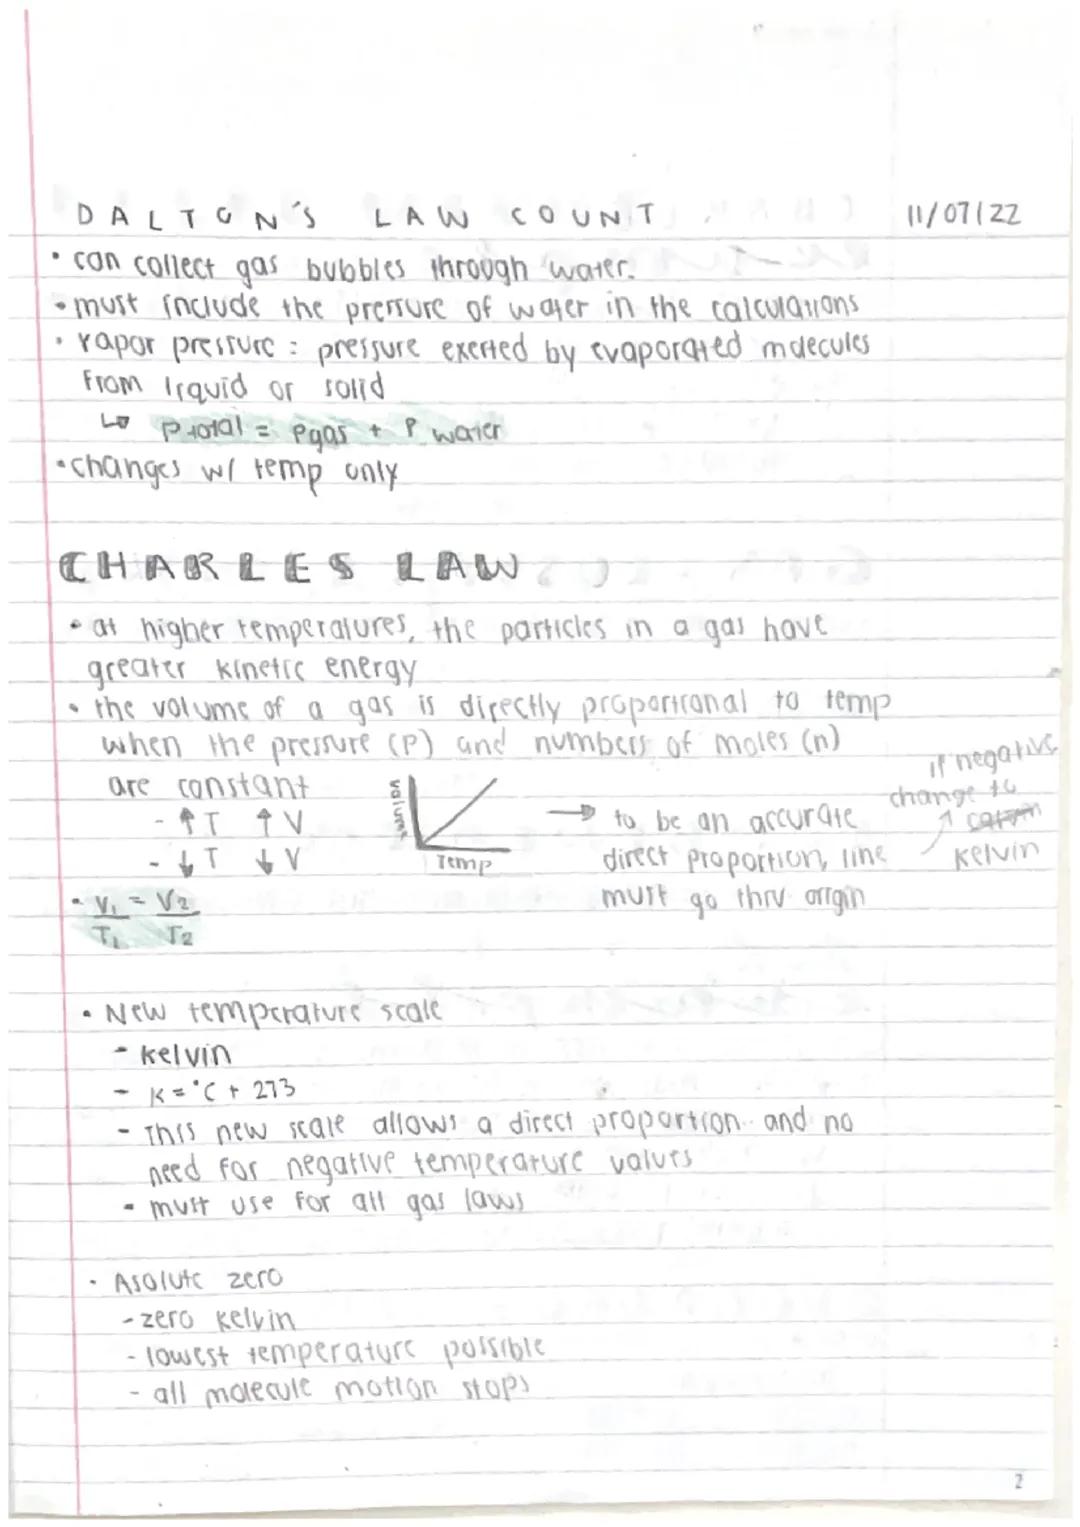 DALTON'S LAW COUNT. 11/07/22
• can collect gas bubbles through water.
• must include the pressure of water in the calculations
• vapor pressure = pressure exerted by evaporated molecules
from liquid or solid
↳ P total = Pgas + P water
• changes w/ temp only
CHARLES LAW
• at higher temperatures, the particles in a gas have
greater kinetic energy
• the volume of a gas is directly proportional to temp
when the pressure (P) and numbers of moles (n)
are constant
- ↑T ↑V
- ↓T ↓V
volume
Temp
→ to be an accurate
direct proportion, line
must go thru origin
if negative
change to
kelvin
• V₁ = V₂
T₁ T₂
• New temperature scale
- kelvin
- K = °C + 273
- This new scale allows a direct proportion and no
need for negative temperature values
- must use for all gas laws
• Asolute zero
- zero kelvin
- lowest temperature possible
- all molecule motion stops
2